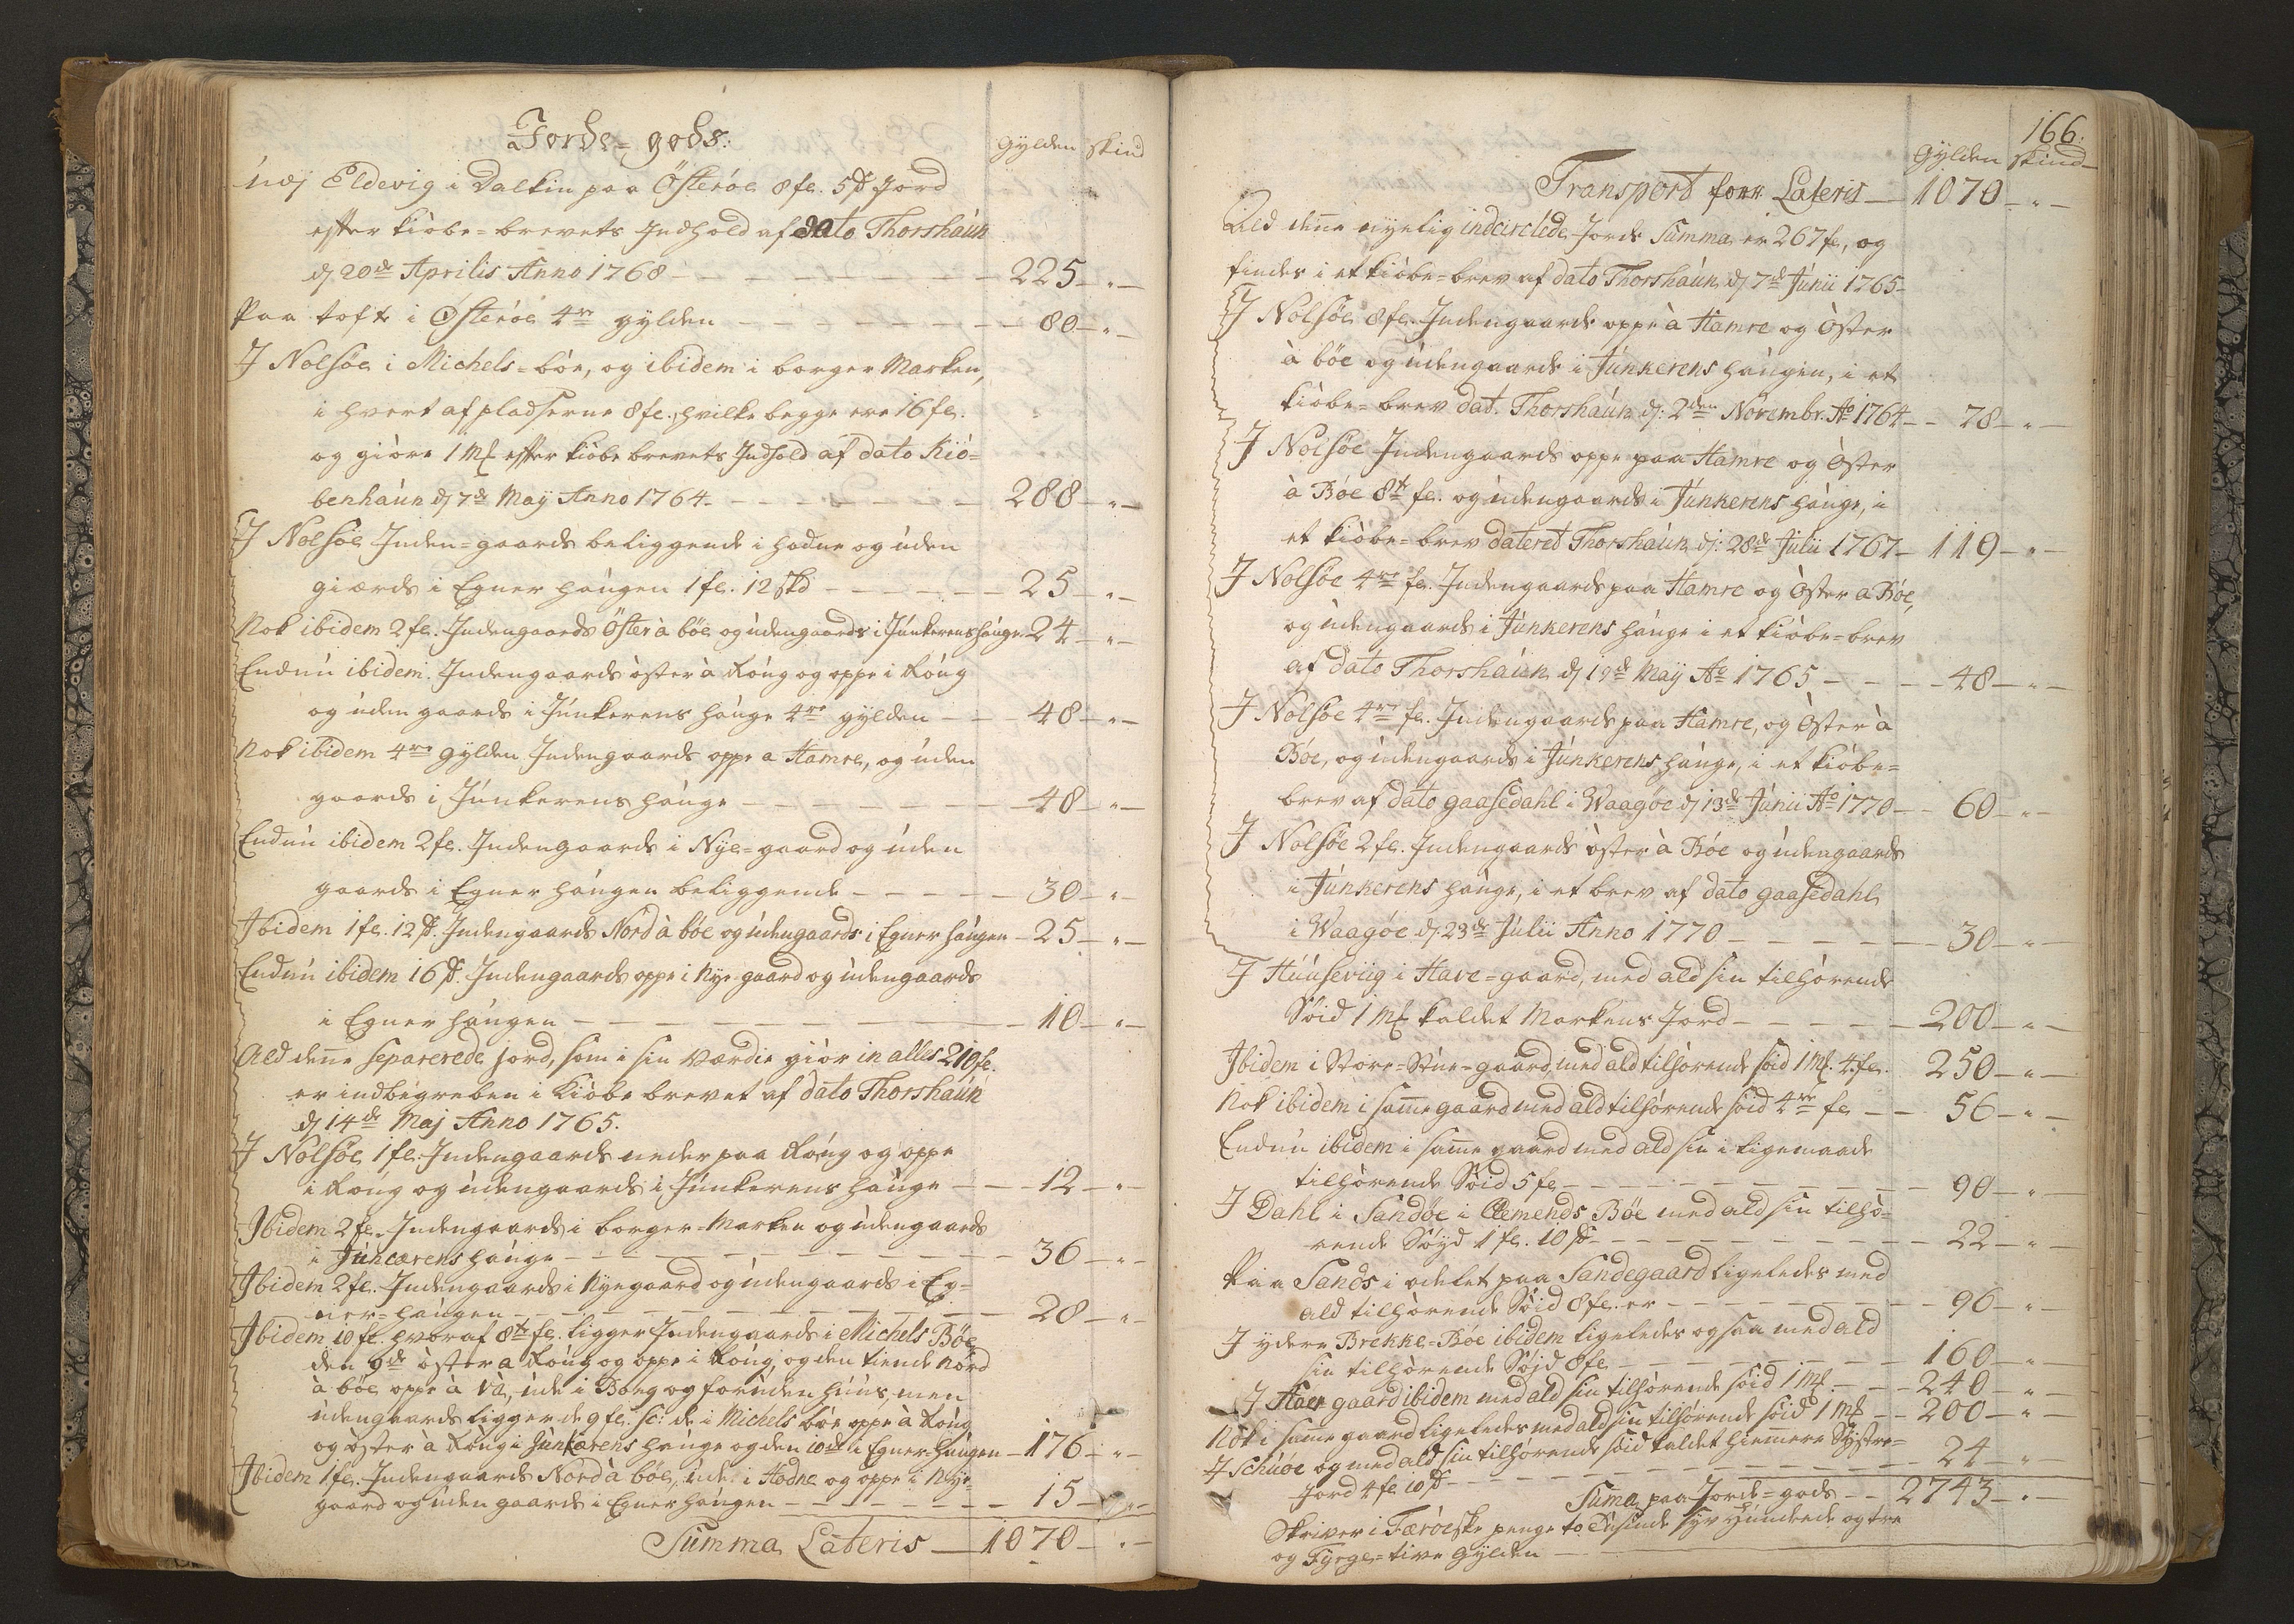 Jorde-gods:
gylden skind
Udj Eldevig i Dalkin paa Österöe 8 fl. 5 sk Jord
efter kiöbe-brevets Indhold af dato Thorshaún
dj 20de Aprilis Anno 1768 — 225 — " —
Paa toft i Österöe 4re gylden — 80 — " —
J Nolsöe i Michels-böe, og ibidem i borger Marken,
i hvert af pladserne 8 fl., hvilke begge ere 16 fl.
og giöre 1 Mk efter kiöbe brevets Indhold af dato Kiö-
benhaún dj 7de Maÿ Anno 1764 — 288 — " —
J Nolsöe Inden-gaards beliggende i hodne og úden
giærds i Egner haúgen 1 fl. 12 skd — 25 — " —
Nok ibidem 2 fl. Indengaards Öster à böe og údengaards i Júnkerens haúge — 24 — " —
Endnú ibidem. Indengaards öster à Roúg og oppe i Roúg
og úden gaards i Júnkerens haúge 4re gylden — 48 — " —
Nok ibidem 4re gylden Indengaards oppe a Hamre, og úden
gaards i Júnkerens haúge — 48 — " —
Endnú ibidem 2 fl. Indengaards i Nÿe-gaard og úden
gaards i Egner haúgen beliggende — 30 — " —
Ibidem 1 fl. 12 sk. Indengaards Nord à böe og údengaards i Egner haúgen — 25 — " —
Endnú ibidem 16 sk. Indengaards oppe i Nye gaard og údengaards
i Egner haúgen — 10 — " —
Ald denne separerede jord, som i sin værdie giör in alles 210 fl.
er indbegreben i Kiöbe brevet af dato Thorshaún
dj 14de Maj Anno 1765.
J Nolsöe 1 fl. Indengaards neder paa Roúg og oppe
i Roúg og údengaards i Júnkerens haúge — 12 — " —
Ibidem 2 fl. Indengaards i borger-Marken og údengaards
i Júncærens haúge — 36 — " —
Ibidem 2 fl. Indengaards i Nÿegaard og údengaards i Eg-
ner-haúgen — 28 — " —
Ibidem 10 fl. hvoraf 8te fl. ligger Indengaards i Michels Böe
den 9de öster a Roúg og oppe i Roúg, og den tiende Nord
à böe oppe à Và, úde i Borg og forúden húús, men
údengaards ligger de 9 fl. sc: de i Michels böe oppe à Roúg
og öster à Roúg i Júnkærens haúge og den 10de i Egner-haúgen — 176 — " —
Ibidem 1 fl. Indengaards Nord à böe, úde i Hodne og oppe i Nÿe-
gaard og úden gaards i Egner haúgen — 15 — " —
Summa Lateris — 1070 — " —
166.
gylden skind
Transport forr. Lateris — 1070 — " —
Ald denne nyelig indcirclede Jords Summa er 267 fl., og
findes i et kiöbe-brev af dato Thorshaún dj 7de Júnii 1765
J Nolsöe 8 fl. Indengaards oppe à Hamre og Öster
à böe og údengaards i Júnkerens haúgen, i et
kiöbe-brev dat. Thorshaún dj: 2den Novembr. Ao 1764 — 78 — " —
J Nolsöe Indengaards oppe paa Hamre og Öster
à Böe 8te fl. og údengaards i Júnkerens haúge, i
et kiöbe-brev dateret Thorshaún dj: 28de Júlii 1767 — 110 — " —
J Nolsöe 4re fl. Indengaards paa Hamre og Öster a Böe,
og údengaards i Júnkerens haúge i et kiöbe-brev
af dato Thorshaún dj 19de Maÿ Ao 1765 — 48 — " —
J Nolsöe 4re fl. Indengaards paa Hamre, og Öster à
Böe, og údengaards i Júnkerens haúge, i et kiöbe-
brev af dato gaasedahl i Waagöe dj 13de Júnii Ao 1770 — 60 — " —
J Nolsöe 2 fl. Indengaards öster à Böe og údengaards
i Júnkerens haúge, i et brev af dato gaasedahl
i Waagöe dj 23de Júlii Anno 1770 — 30 — " —
J Húúseviig i Have-gaard, med ald sin tilhörende
Söid 1 Mk kaldet Markens Jord — 200 — " —
Ibidem i Store-Stúe-gaard, med ald tilhörende söid 1 Mk. 4 fl. 250 — " —
Nok ibidem i samme gaard med ald tilhörende söid 4re fl. — 56 — " —
Endnú ibidem i samme gaard med ald sin i ligemaade
tilhörende Söid 5 fl. — 90 — " —
J Dahl i Sandöe i Clemends Böe med ald sin tilhö-
rende Söyd 1 fl. 10 sk — 22 — " —
Paa Sands i odelet paa Sandegaard ligeledes med
ald tilhörende Söid 8 fl. er — 96 — " —
J ydere Brekke-Böe ibidem ligeledes ogsaa med ald
sin tilhörende Söjd 8 fl. — 160 — " —
J gaard ibidem med ald sin tilhörende söid 1 Mk. — 240 — " —
Nok i samme gaard ligeledes med ald sin tilhörende söid 1 Mk — 200 — " —
J Schúoe og med ald sin tilhörende söid kaldet hiemmere Systre-
Jord 4 fl. 10 sk — 24 — " —
Suma paa Jorde-gods — 2743 — " —
Skriver i Færöeske penge to Túsinde syv Húndrede og tre
og Fyrge-tive gylden —